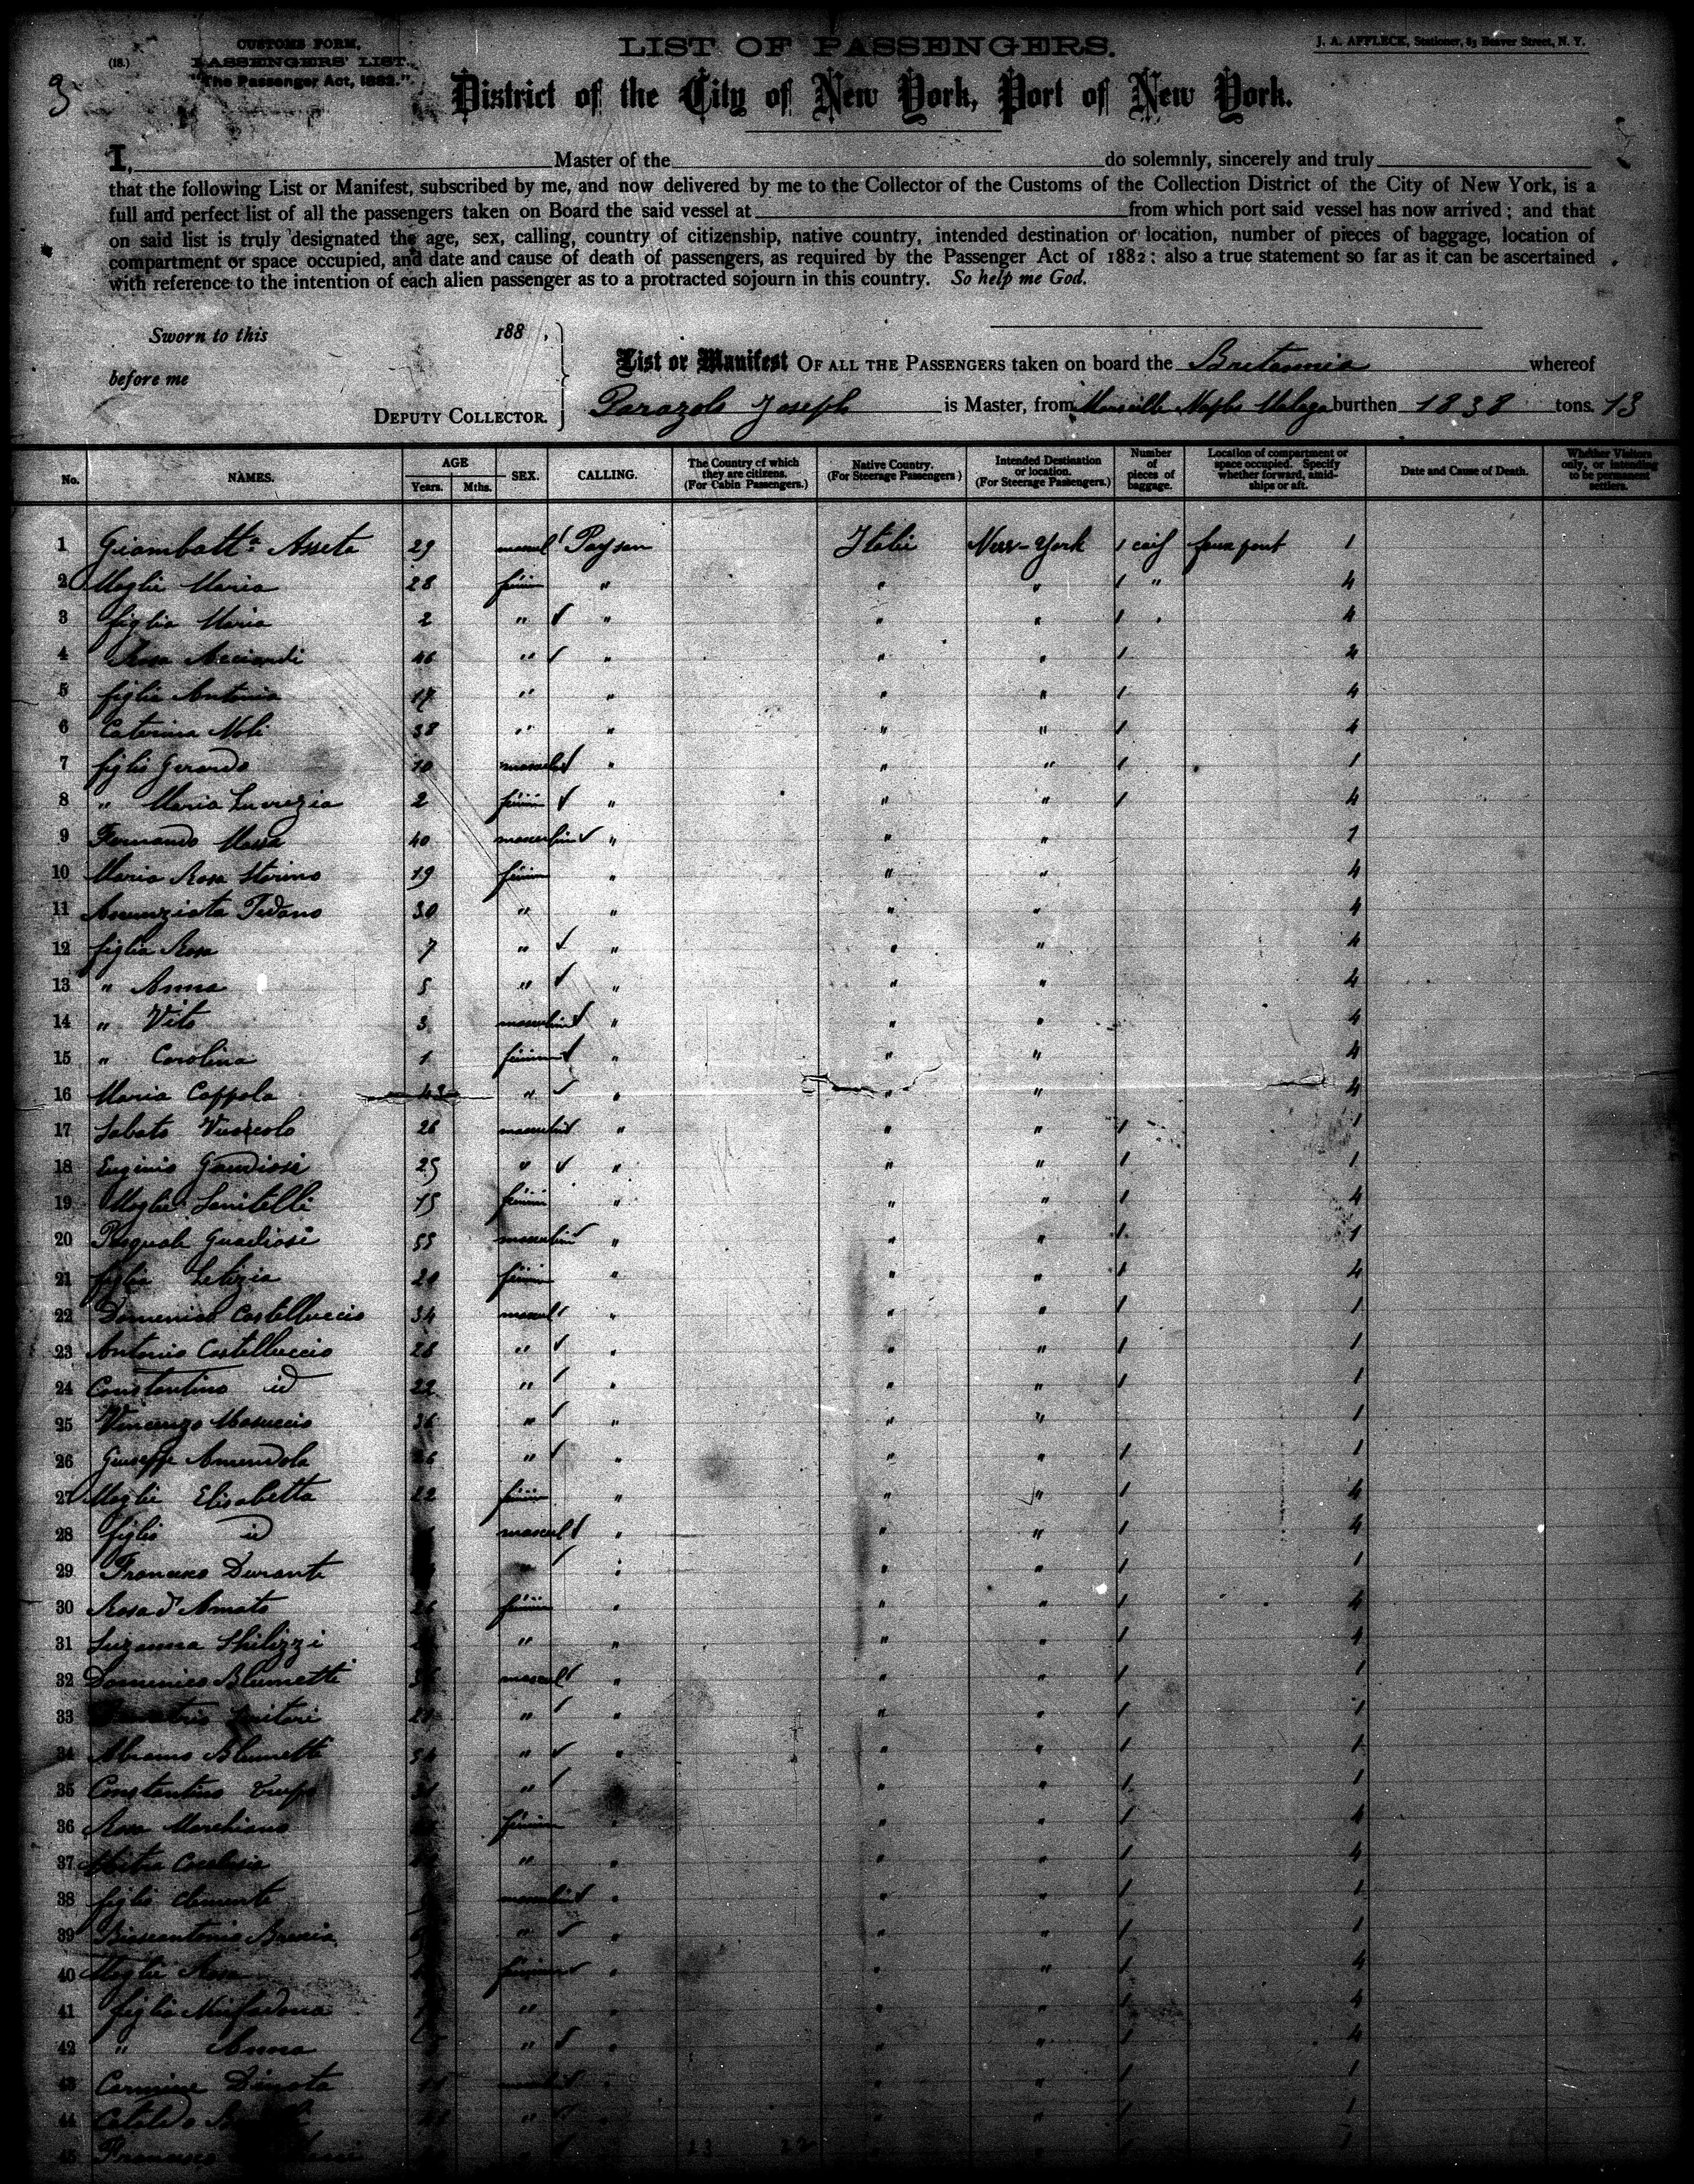 CUSTOMS FORM,
(18.) PASSENGERS' LIST.
"The Passenger Act, 1882."
3
LIST OF PASSENGERS.
J. A. AFFLECK, Stationer, 83 Beaver Street, N. Y.
District of the City of New York, Port of New York.
I, Master of the do solemnly, sincerely and truly
that the following List or Manifest, subscribed by me, and now delivered by me to the Collector of the Customs of the Collection District of the City of New York, is a
full and perfect list of all the passengers taken on Board the said vessel at from which port said vessel has now arrived; and that
on said list is truly designated the age, sex, calling, country of citizenship, native country, intended destination or location, number of pieces of baggage, location of
compartment or space occupied, and date and cause of death of passengers, as required by the Passenger Act of 1882; also a true statement so far as it can be ascertained
with reference to the intention of each alien passenger as to a protracted sojourn in this country. So help me God.
Sworn to this 188 ,
before me
DEPUTY COLLECTOR.
List or Manifest OF ALL THE PASSENGERS taken on board the Britannia whereof
Parazols Joseph is Master, from Marseille Naples Malaga burthen 1838 tons. 13
No. NAMES. AGE Years. Mths. SEX. CALLING. The Country of which they are citizens. (For Cabin Passengers.) Native Country. (For Steerage Passengers) Intended Destination or location. (For Steerage Passengers.) Number of pieces of baggage. Location of compartment or space occupied. Specify whether forward, amidships or aft. Date and Cause of Death. Whether Visitors only, or intending to be permanent settlers.
1 Giambatta Asseta 29 mascul Paysan Italie New-York 1 1
2 Moglie Maria 28 fémin " " " 1 " 4
3 figlia Maria 2 " " " " 1 4
4 Rosa Acciardi 46 " " " " 1 4
5 figlia Antonia 17 " " " 1 4
6 Caterina Noli 38 " " " " 1 4
7 figlio Gerardo 10 masculin " " " 1 1
8 " Maria Lucrezia 2 fémin " " " 1 4
9 Fernando Massa 40 masculin " " " 1
10 Maria Rosa Storino 19 fémin " " " 4
11 Annunziata Tedano 30 " " " " 4
12 figlia Rosa 7 " " " " 4
13 " Anna 5 " " " " 4
14 " Vito 3 masculin " " " 4
15 " Carolina 1 fémin " " " 4
16 Maria Coppola 43 " " " " 4
17 Sabato 26 masculin " " " 1 1
18 Eugenio Gaudiosi 25 " " " " 1 1
19 Moglie 15 fémin " " " 1 4
20 Pasquale Guadiosi 55 masculin " " " 1 1
21 figlia Letizia 20 fémin " " " 1 4
22 Domenico Castelluccio 34 mascul " " " 1 1
23 Antonio Castelluccio 28 " " " " 1 1
24 Constantino id 22 " " " " 1 1
25 Vincenzo Masuccio 36 " " " " 1
26 Giuseppe Amendola 26 " " " " 1 1
27 Moglie Elisabetta 22 fémin " " " 1 4
28 figlio id mascul " " " 1 4
29 Francesco Durante " " " " 1 1
30 Rosa d'Amato 26 fémin " " " 1 4
31 Suzanna Shilizzi " " " " 1 4
32 Domenico Blumetti mascul " " " 1 1
33 " " " " 1 1
34 Abramo Blumetti 54 " " " " 1 1
35 Constantino " " " 1 1
36 Rosa Marchiano fémin " " " 1 4
37 " " " " 1 4
38 figlio Clemente masculin " " " 1 1
39 " " " " 1 1
40 Moglie Rosa fémin " " " 1 4
41 figlia " " " " 1 4
42 " Anna " " " " 1 4
43 Carmine Dinota " " " 1 1
44 Cataldo " " " " 1 1
45 Francesco